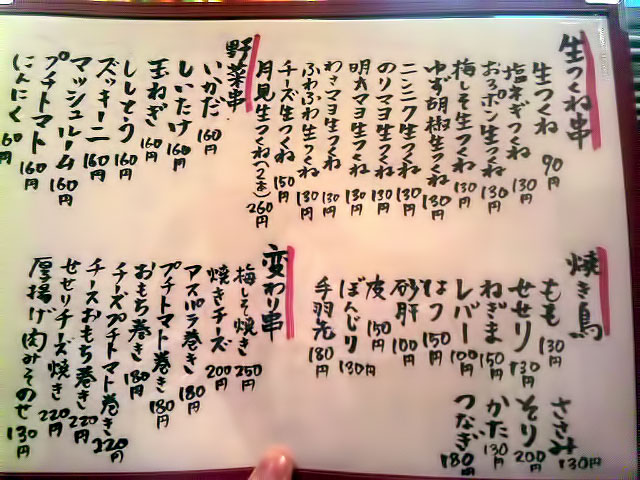 生つくね串
生つくね 90円
塩ネギつくね 130円
おろポン生つくね 130円
梅しそ生つくね 130円
ゆず胡椒生つくね 130円
ニンニク生つくね 130円
のりマヨ生つくね 130円
明太マヨ生つくね 130円
わさマヨ生つくね 130円
ふわふわ生つくね 130円
チーズ生つくね 150円
月見生つくね(2本) 260円
野菜串
いかだ 160円
しいたけ 160円
玉ねぎ 160円
ししとう 160円
ズッキーニ 160円
マッシュルーム 160円
プチトマト 160円
にんにく 160円
焼き鳥
もも 130円
せせり 130円
ねぎま 150円
レバー 100円
はつ 150円
砂肝 100円
皮 150円
ぼんじり 130円
手羽先 180円
ささみ 130円
そり 200円
かた 130円
つなぎ 180円
変わり串
梅しそ焼き 250円
焼きチーズ 200円
アスパラ巻き 180円
プチトマト巻き 180円
おもち巻き 180円
チーズプチトマト巻き 220円
チーズおもち巻き 220円
せせりチーズ焼き 220円
厚揚げ肉みそのせ 130円